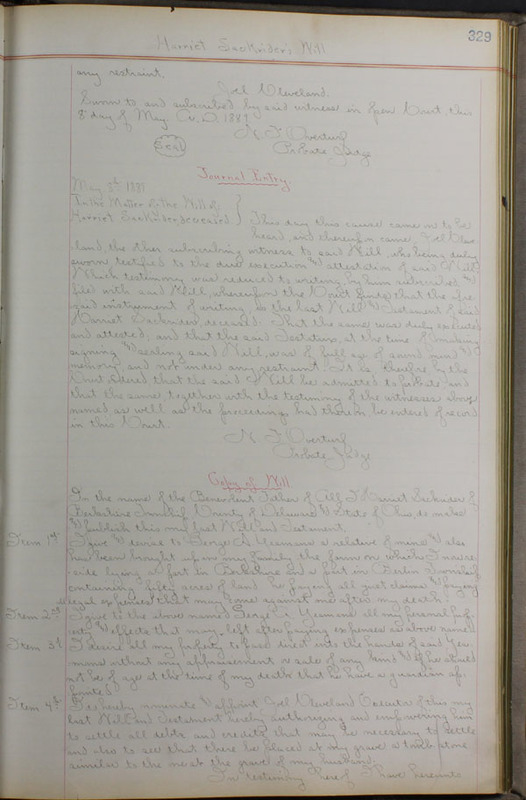 329
Harriet Sackrider's Will
any restraint.
Joel Cleveland.
Sworn to and subscribed by said witness in Open Court, this
8 day of May, A.D. 1881
N. F. Overturf
Seal Probate Judge
Journal Entry.
May 8th 1881
In the Matter of the Will of
Harriet Sackrider deceased } This day this cause came on to be
heard, and thereupon came, Joel Cleve
land, the other subscribing witness to said Will, who being duly
sworn testified to the due execution & attestation of said Will
Which testimony was reduced to writing, by him subscribed, &
filed with said Will, whereupon the Court finds that the afore
said instrument of writing, is the last Will & Testament of said
Harriet Sackrider, deceased. That the same was duly executed
and attested, and that the said Testatrix, at the time of making
signing & sealing said Will, was of full age of sound mind &
memory and not under any restraint. It is therefore by the
Court, Ordered that the said Will be admitted to probate and
that the same, together with the testimony of the witnesses above
named as well as the proceedings had thereon be entered of record
in this Court.
N. F. Overturf
Probate Judge
Copy of Will
In the name of the Benevolent Father of All, I Harriet Sackrider of
Berkshire Township County of Delaware & State of Ohio, do make
& publish this my last Will and Testament.
Item 1st I give & devise to George A. Yeamans a relative of mine & also
has been brought up in my family the farm on which I now re-
side lying a part in Berkshire and a part in Berlin Township
containing fifty acres of land he paying all just claims & paying
all legal expenses that may come against me after my death.
Item 2nd I give to the above named George A. Yeamans all my personal prop
erty & effects that may left after paying expenses as above named
Item 3d I desire all my property to pass direct into the hands of said Yea-
mans without any appraisement or sale of any kind & if he should
not be of age at the time of my death that he have a guardian ap-
pointed.
Item 4th I do hereby nominate & appoint Joel Cleveland Executor of this my
last Will and Testament hereby authorizing and empowering him
to settle all debts and credits that may be necessary to settle
and also to see that there be placed at my grave a tomb stone
similar to the one at the grave of my husband.
In testimony hereof I have hereunto